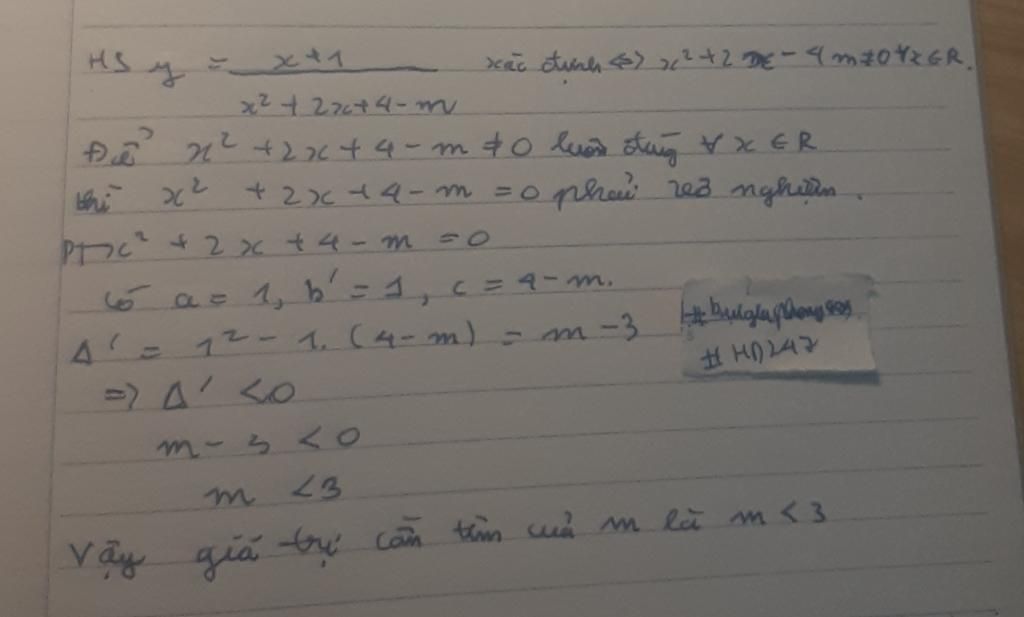 HS y = x+1 / x² + 2x + 4 - m xác định <=> x² + 2x - 4m ≠ 0 ∀x ∈ R.
Để x² + 2x + 4 - m ≠ 0 luôn đúng ∀ x ∈ R
thì x² + 2x + 4 - m = 0 phải vô nghiệm.
PT x² + 2x + 4 - m = 0
có a = 1, b' = 1, c = 4 - m.
Δ' = 1² - 1. (4 - m) = m - 3
=> Δ' < 0
m - 3 < 0
m < 3
Vậy giá trị cần tìm của m là m < 3
# HD247